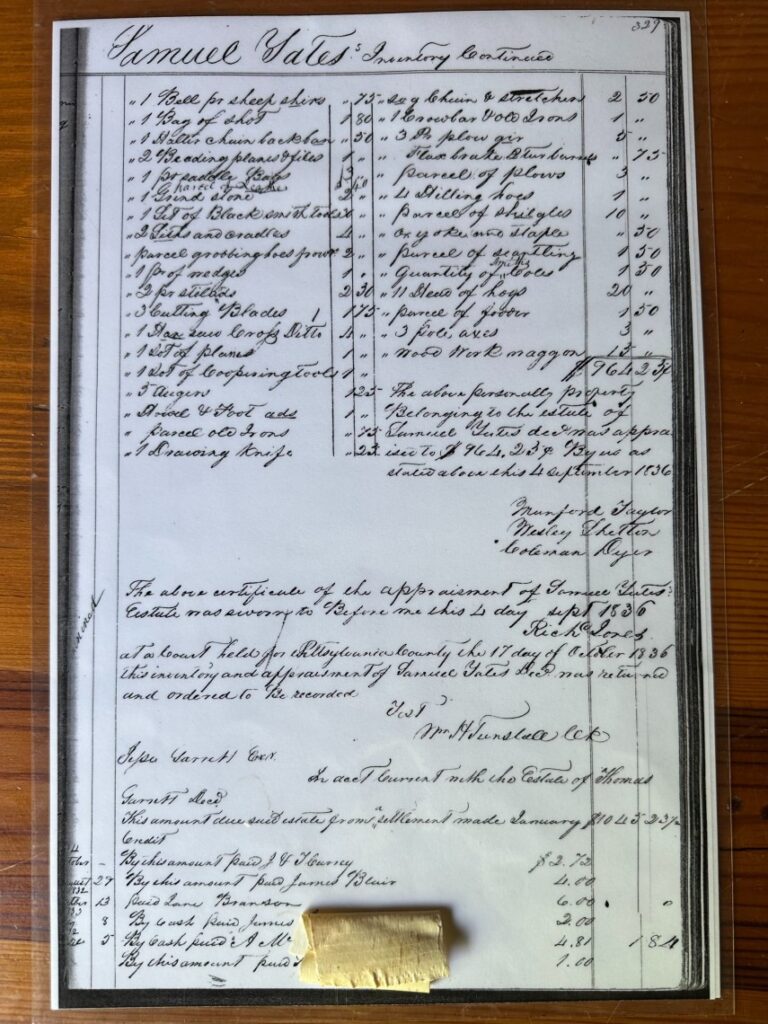 327
Samuel Yates's Inventory Continued
" 1 Bell pr sheep shirs " 75
" 1 Bag of shot 1 80
" 1 Halter chain back ban " 50
" 2 Beading planes & files 1 "
" 1 pr saddle Bags 3
parcel of
" 1 Grind stone 2 "
" 1 Set of Black smith tools
" 2 Siths and cradles 4 "
parcel grobbing hoes 2 "
" 1 pr of wedges 1 "
" 2 pr stilads 2 30
" 3 Cutting Blades 1 75
" 1 Han saw Cross Ditto 4 "
" 1 Lot of planes 1 "
" 1 Lot of Coopering tools 1 "
" 3 Augers 1 25
" Howel & Foot ads 1 "
" parcel old Irons " 75
" 1 Drawing Knife " 25
Chain & stretchers 2 50
" 1 Crowbar & old Irons 1 "
" 3 Pr plow gir 5 "
" Flax brake & " 75
" parcel of plows 3 "
" 4 Hilling hoes 1 "
" parcel of shingles 10 "
" Ox yoke and staple " 50
" parcel of scantling 1 50
Smiths
" Quantity of Coles 1 50
" 11 Head of hogs 20 "
" parcel of fodder 1 50
" 3 pole axes 3 "
" Wood Work waggon 15 "
$964 23¢
The above personally property
Belonging to the estate of
Samuel Yates decd was appra
ised to $964,23¢ By us as
stated above this 4 september 1836
Munford Taylor
Wesley Shelton
Coleman Dyer
The above certificate of the appraisment of Samuel Yates'
Eestate was sworn to Before me this 4 day sept 1836
Richd Jones
at a Court held for Pittsylvania County the 17 day of October 1836
this inventory and appraisment of Samuel Yates Decd was returned
and ordered to Be recorded
Test
Wm H Tunstall Clk
Jesse Garrett Exr.
In acct Current with the Estate of Thomas
Garrett Decd
This amount due said estate from a settlement made January $1045 23½
Credit
By this amount paid J & T Carney $2.72
29 By this amount paid James Blair 4.00
13 paid Lane Branson 6.00 "
8 By Cash paid James 2.00
5 By Cash paid A Mc 4.81 184
By this amount paid 1.00